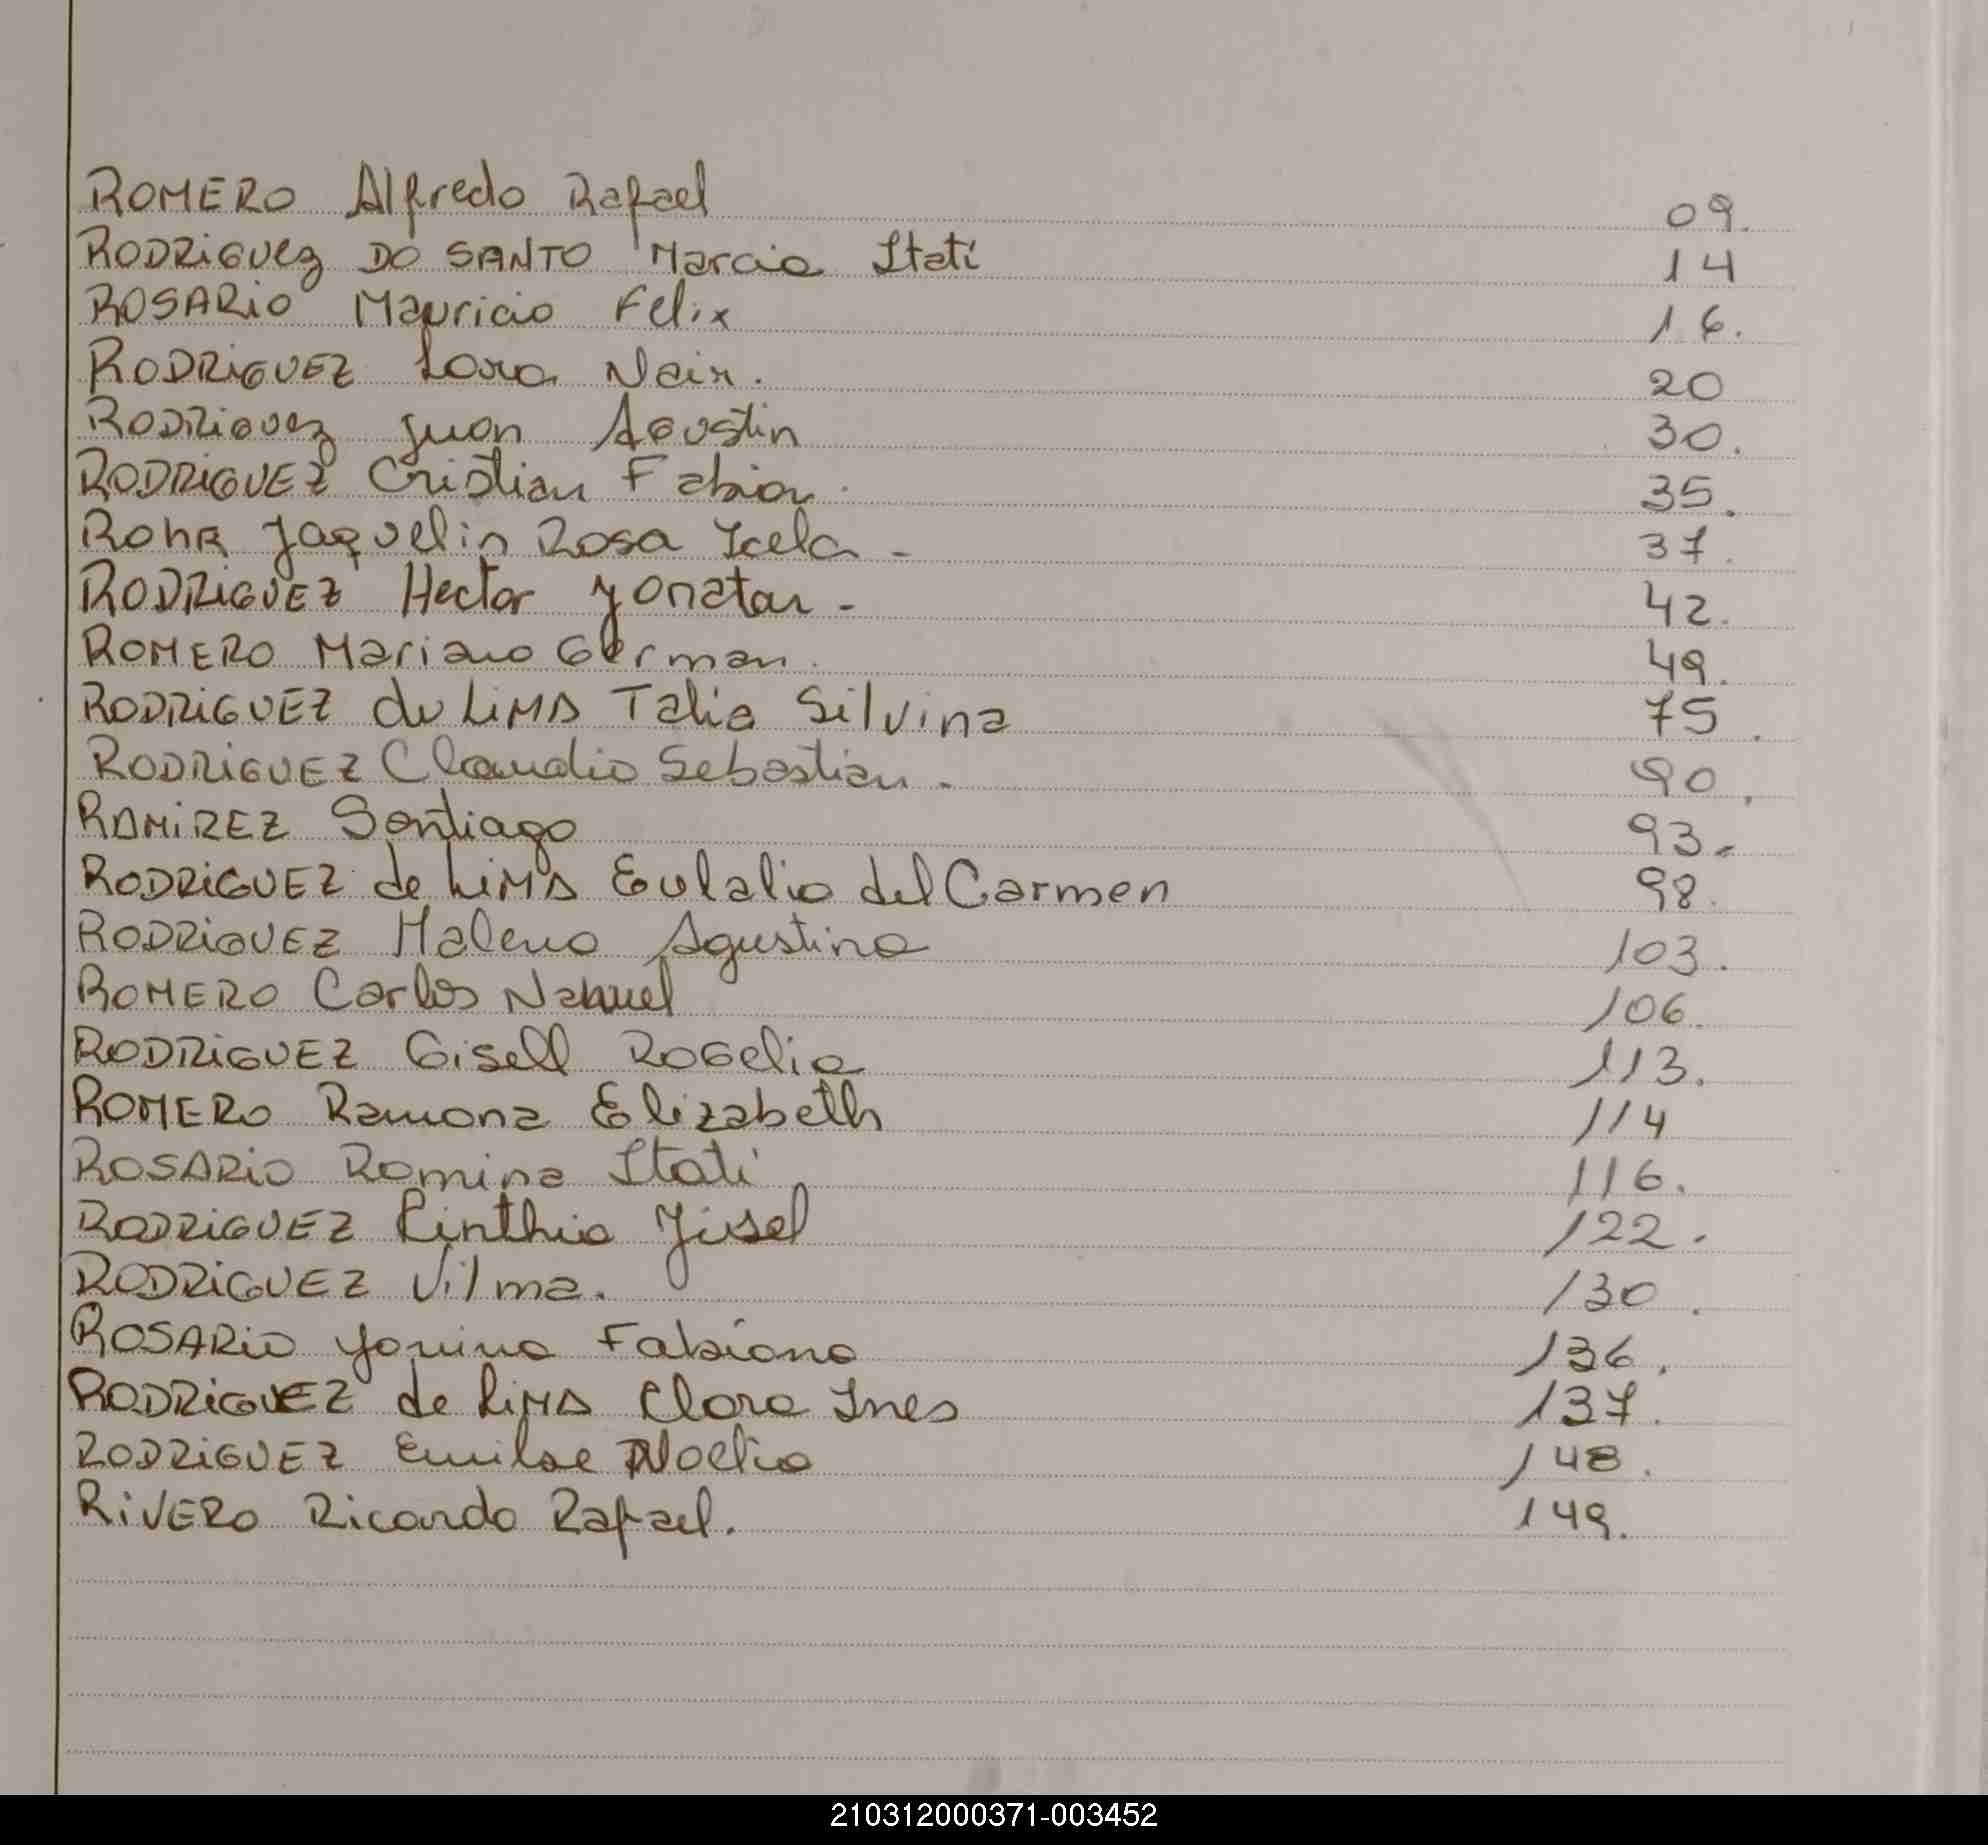 ROMERO Alfredo Rafael 09.
RODRIGUEZ DO SANTO Marcia Itati 14
ROSARIO Mauricio Felix 16.
RODRIGUEZ Lara Nair. 20
RODRIGUEZ Juan Agustin 30.
RODRIGUEZ Cristian Fabian. 35.
ROHR Jaquelin Rosa Icela - 37.
RODRIGUEZ Hector Yonatan - 42.
ROMERO Mariano German. 49.
RODRIGUEZ du LiMA Talia Silvina 75.
RODRIGUEZ Claudio Sebastian. - 90.
RAMIREZ Santiago 93.
RODRIGUEZ de LiMA Eulalio del Carmen 98.
RODRIGUEZ Malena Agustina 103.
ROMERO Carlos Nahuel 106.
RODRIGUEZ Gisell Rogelia 113.
ROMERO Ramona Elizabeth 114
ROSARIO Romina Itati 116.
RODRIGUEZ Cinthia Jisel 122.
RODRIGUEZ Vilma. 130.
ROSARIO Yanina Fabiana 136.
RODRIGUEZ de LiMA Clara Ines 137.
RODRIGUEZ Emilse Noelia 148.
RIVERO Ricardo Rafael. 149.
210312000371-003452